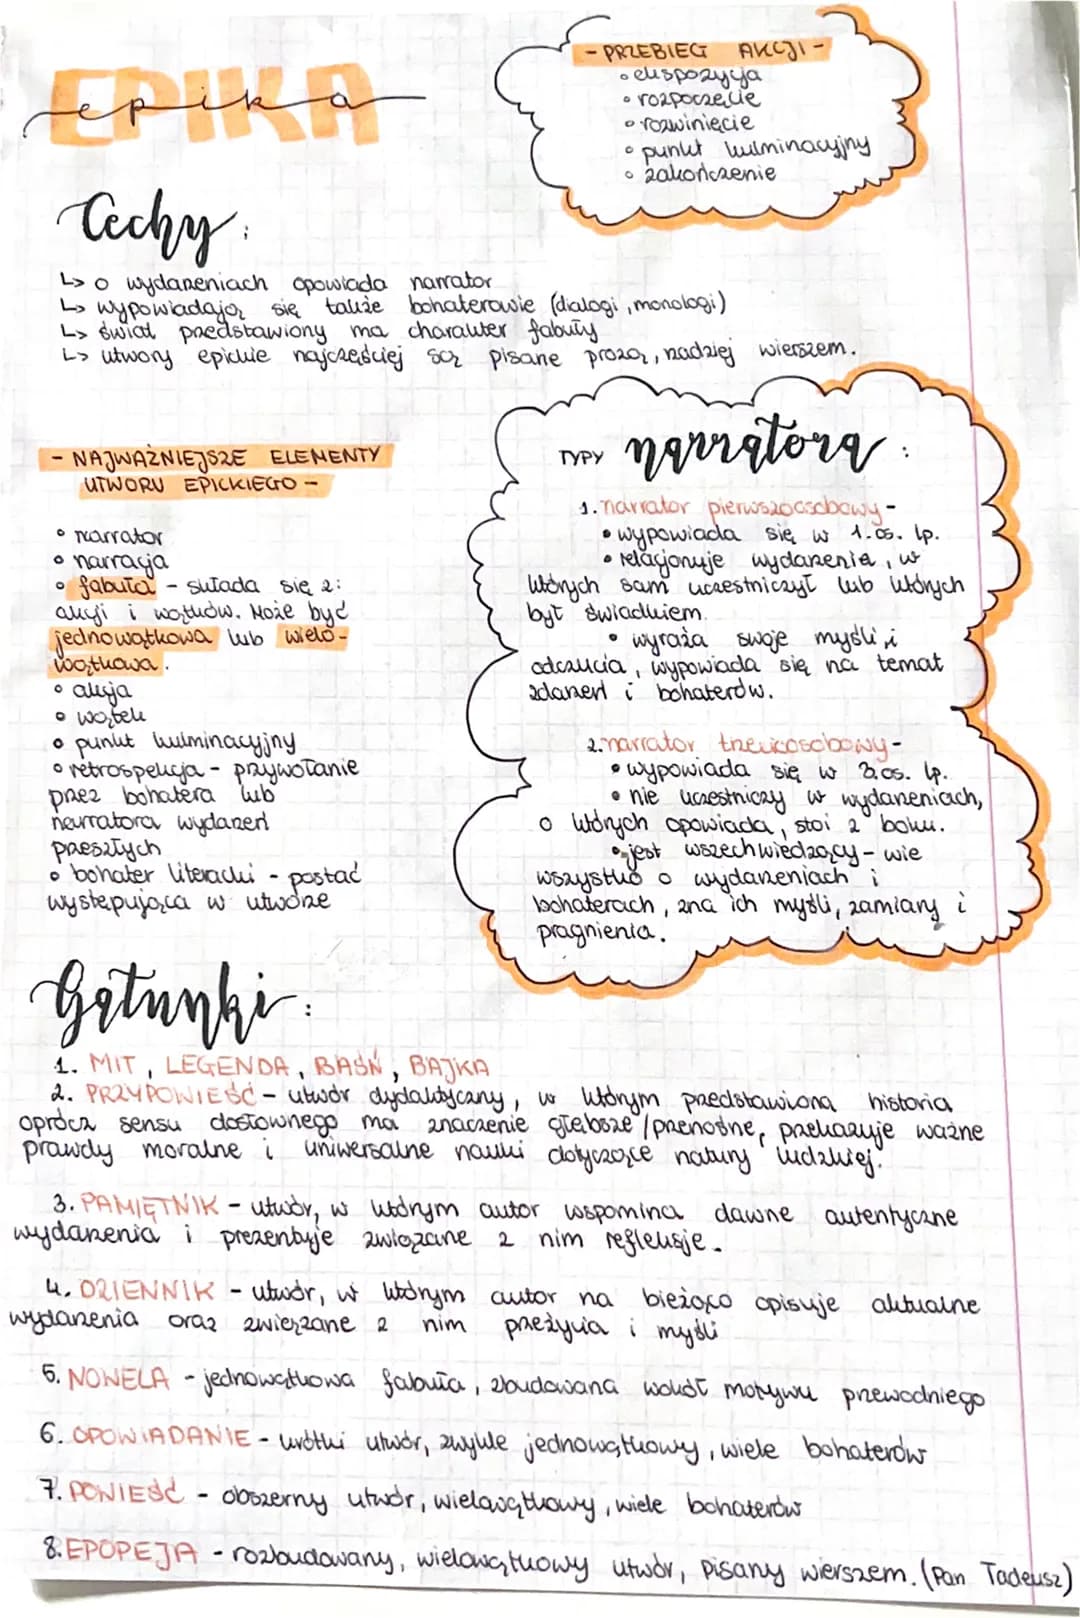 EPIKA
epika
- PRZEBIEG AKCJI -
• ekspozycja
• rozpoczęcie
• rozwinięcie
• punkt kulminacyjny
• zakończenie
Cechy:
↳ o wydarzeniach opowiada narrator
↳ wypowiadają się także bohaterowie (dialogi, monologi)
↳ świat przedstawiony ma charakter fabuły
↳ utwory epickie najczęściej są pisane prozą, rzadziej wierszem.
- NAJWAŻNIEJSZE ELEMENTY
UTWORU EPICKIEGO -
• narrator
• narracja
• fabuła - składa się z:
akcji i wątków. Może być
jednowątkowa lub wielo-
wątkowa.
• akcja
• wątek
• punkt kulminacyjny
• retrospekcja - przywołanie
przez bohatera lub
narratora wydarzeń
przeszłych
• bohater literacki - postać
występująca w utworze
TYPY narratora:
1. narrator pierwszoosobowy -
• wypowiada się w 1.os. lp.
• relacjonuje wydarzenia, w
których sam uczestniczył lub których
był świadkiem.
• wyraża swoje myśli i
odczucia, wypowiada się na temat
zdarzeń i bohaterów.
2. narrator trzecioosobowy -
• wypowiada się w 3.os. lp.
• nie uczestniczy w wydarzeniach,
o których opowiada, stoi z boku.
• jest wszechwiedzący - wie
wszystko o wydarzeniach i
bohaterach, zna ich myśli, zamiary i
pragnienia.
Gatunki:
1. MIT, LEGENDA, BAŚŃ, BAJKA
2. PRZYPOWIEŚĆ - utwór dydaktyczny, w którym przedstawiona historia
oprócz sensu dosłownego ma znaczenie głębsze/przenośne, przekazuje ważne
prawdy moralne i uniwersalne nauki dotyczące natury ludzkiej.
3. PAMIĘTNIK - utwór, w którym autor wspomina dawne autentyczne
wydarzenia i prezentuje związane z nim refleksje.
4. DZIENNIK - utwór, w którym autor na bieżąco opisuje aktualne
wydarzenia oraz związane z nim przeżycia i myśli
5. NOWELA - jednowątkowa fabuła, zbudowana wokół motywu przewodniego
6. OPOWIADANIE - krótki utwór, zwykle jednowątkowy, wiele bohaterów
7. POWIEŚĆ - obszerny utwór, wielowątkowy, wiele bohaterów
8. EPOPEJA - rozbudowany, wielowątkowy utwór, pisany wierszem. (Pan Tadeusz)